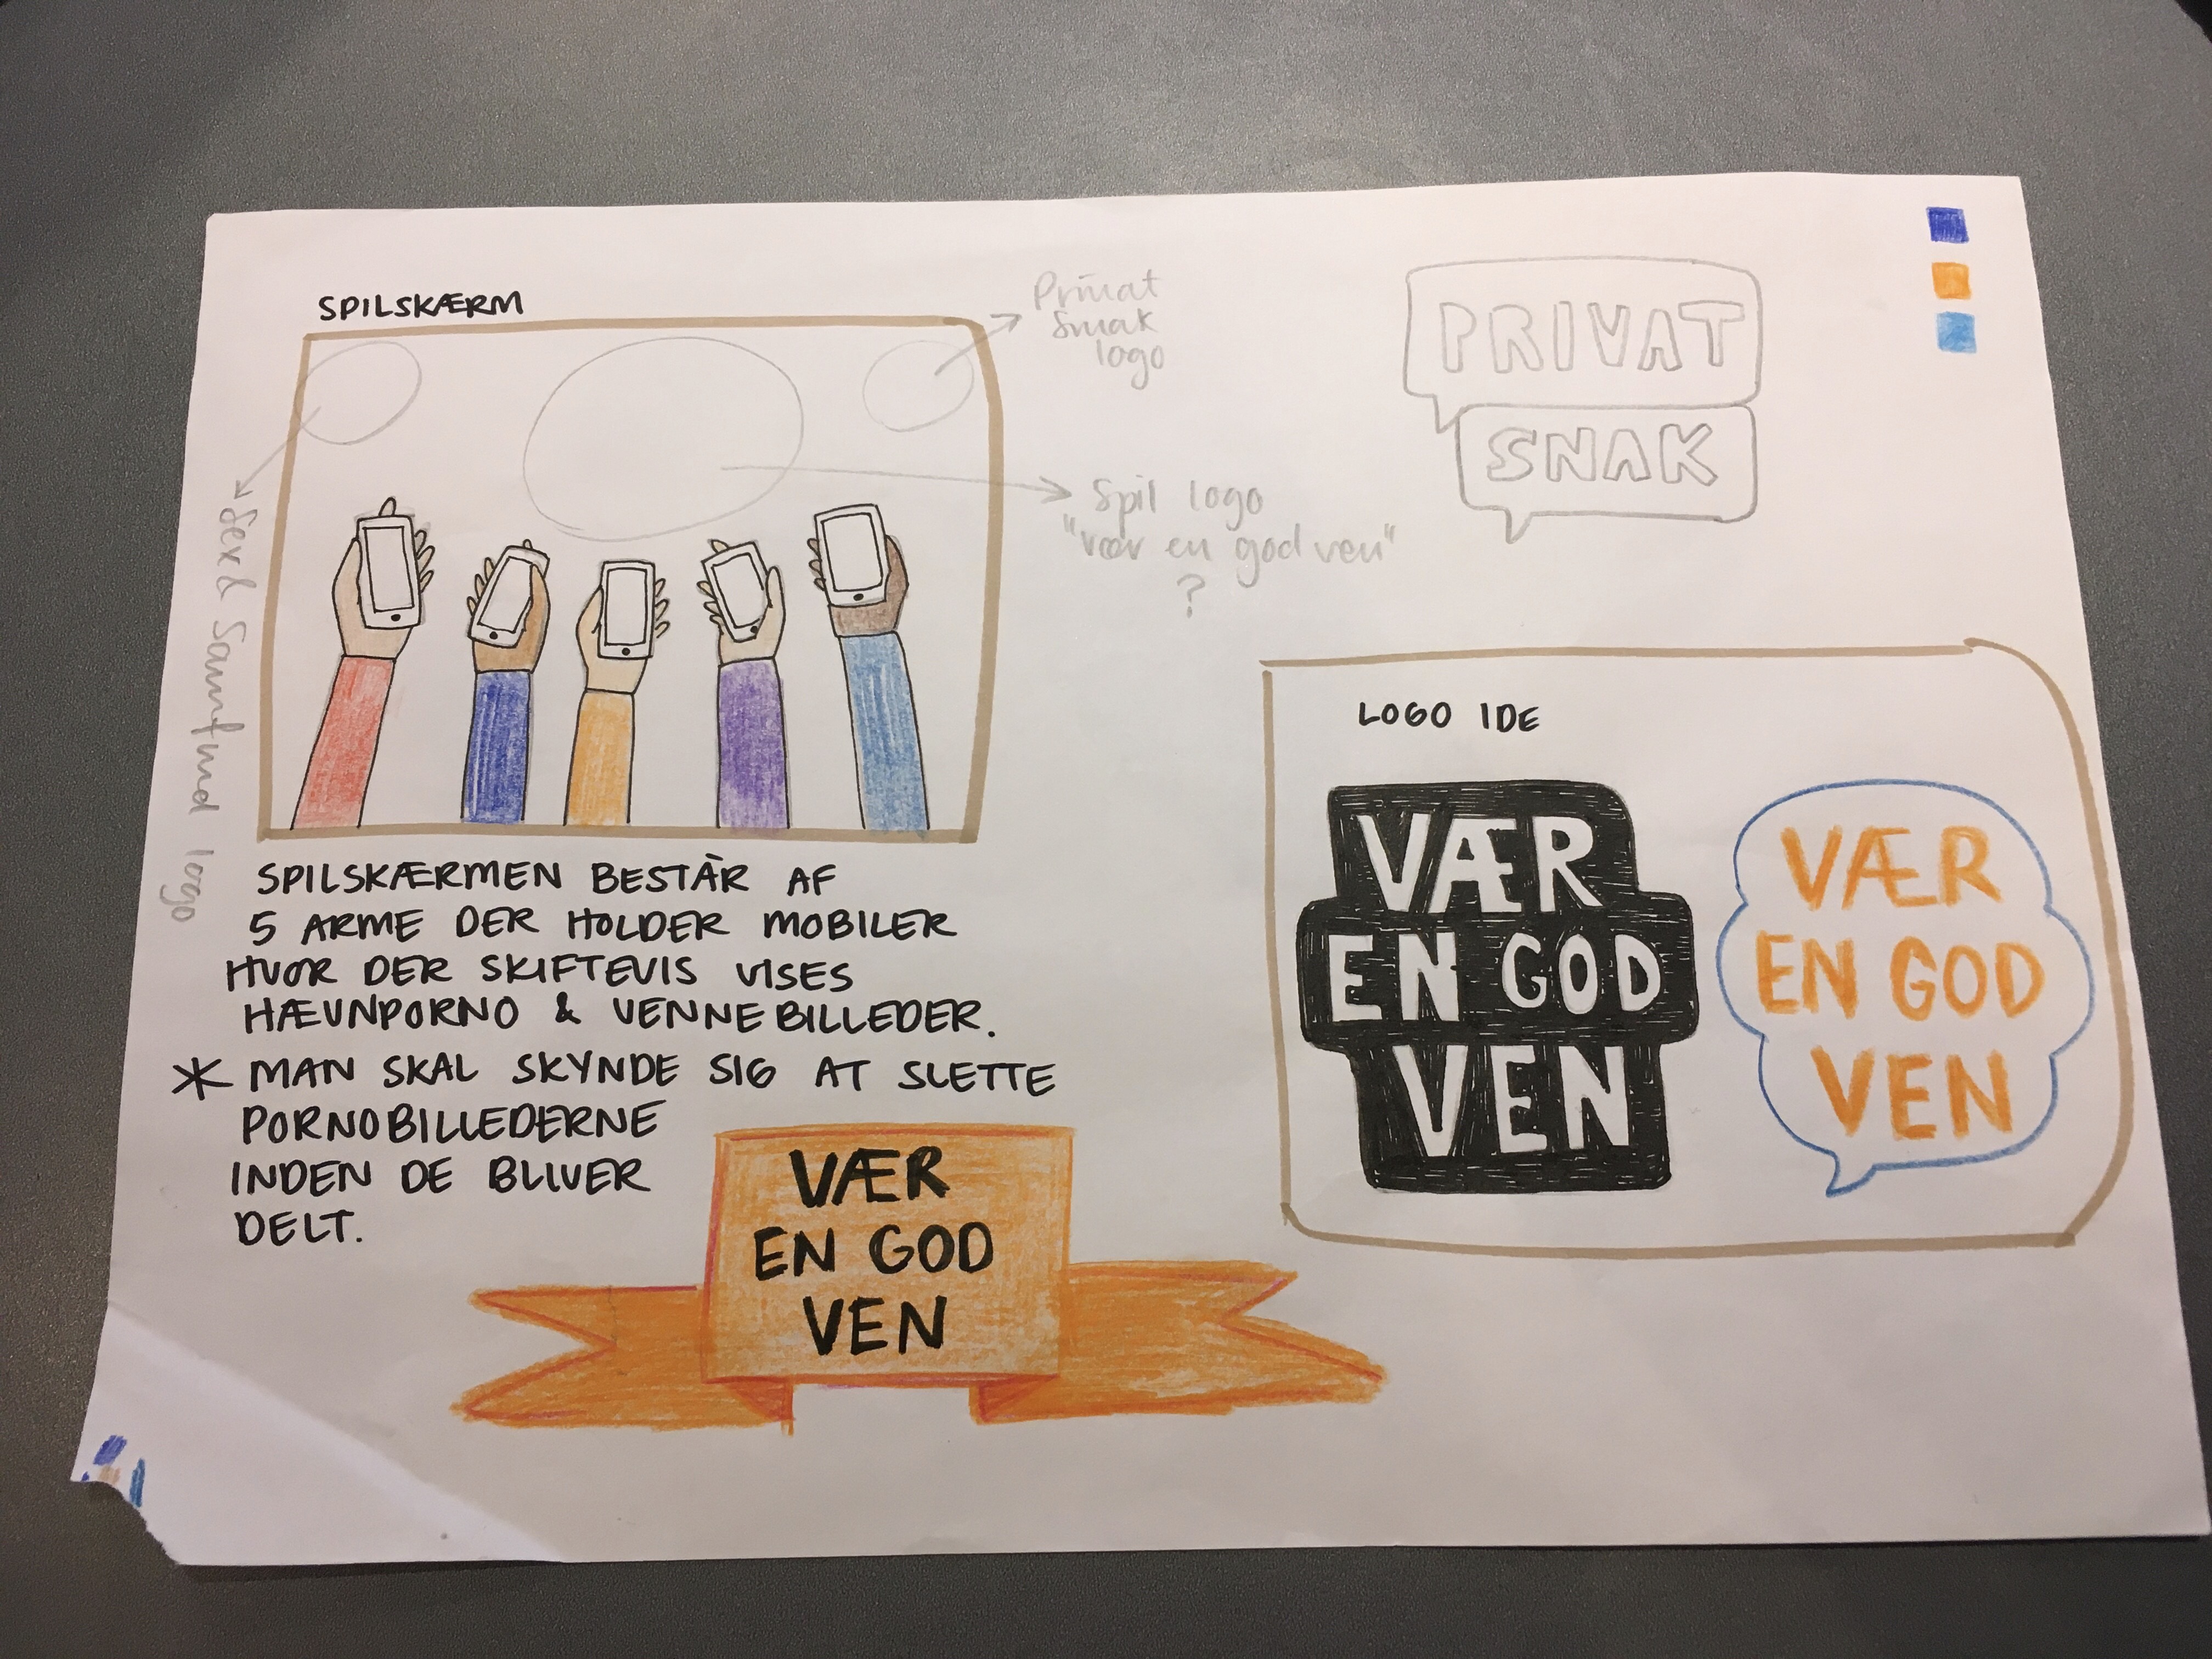 SPILSKÆRM
Privat
Snak
logo
Spil logo
"vær en god ven"
?
Sex & Samfund logo
PRIVAT
SNAK
SPILSKÆRMEN BESTÅR AF
5 ARME DER HOLDER MOBILER
HVOR DER SKIFTEVIS VISES
HÆVNPORNO & VENNEBILLEDER.
* MAN SKAL SKYNDE SIG AT SLETTE
PORNOBILLEDERNE
INDEN DE BLIVER
DELT.
VÆR
EN GOD
VEN
LOGO IDE
VÆR
EN GOD
VEN
VÆR
EN GOD
VEN